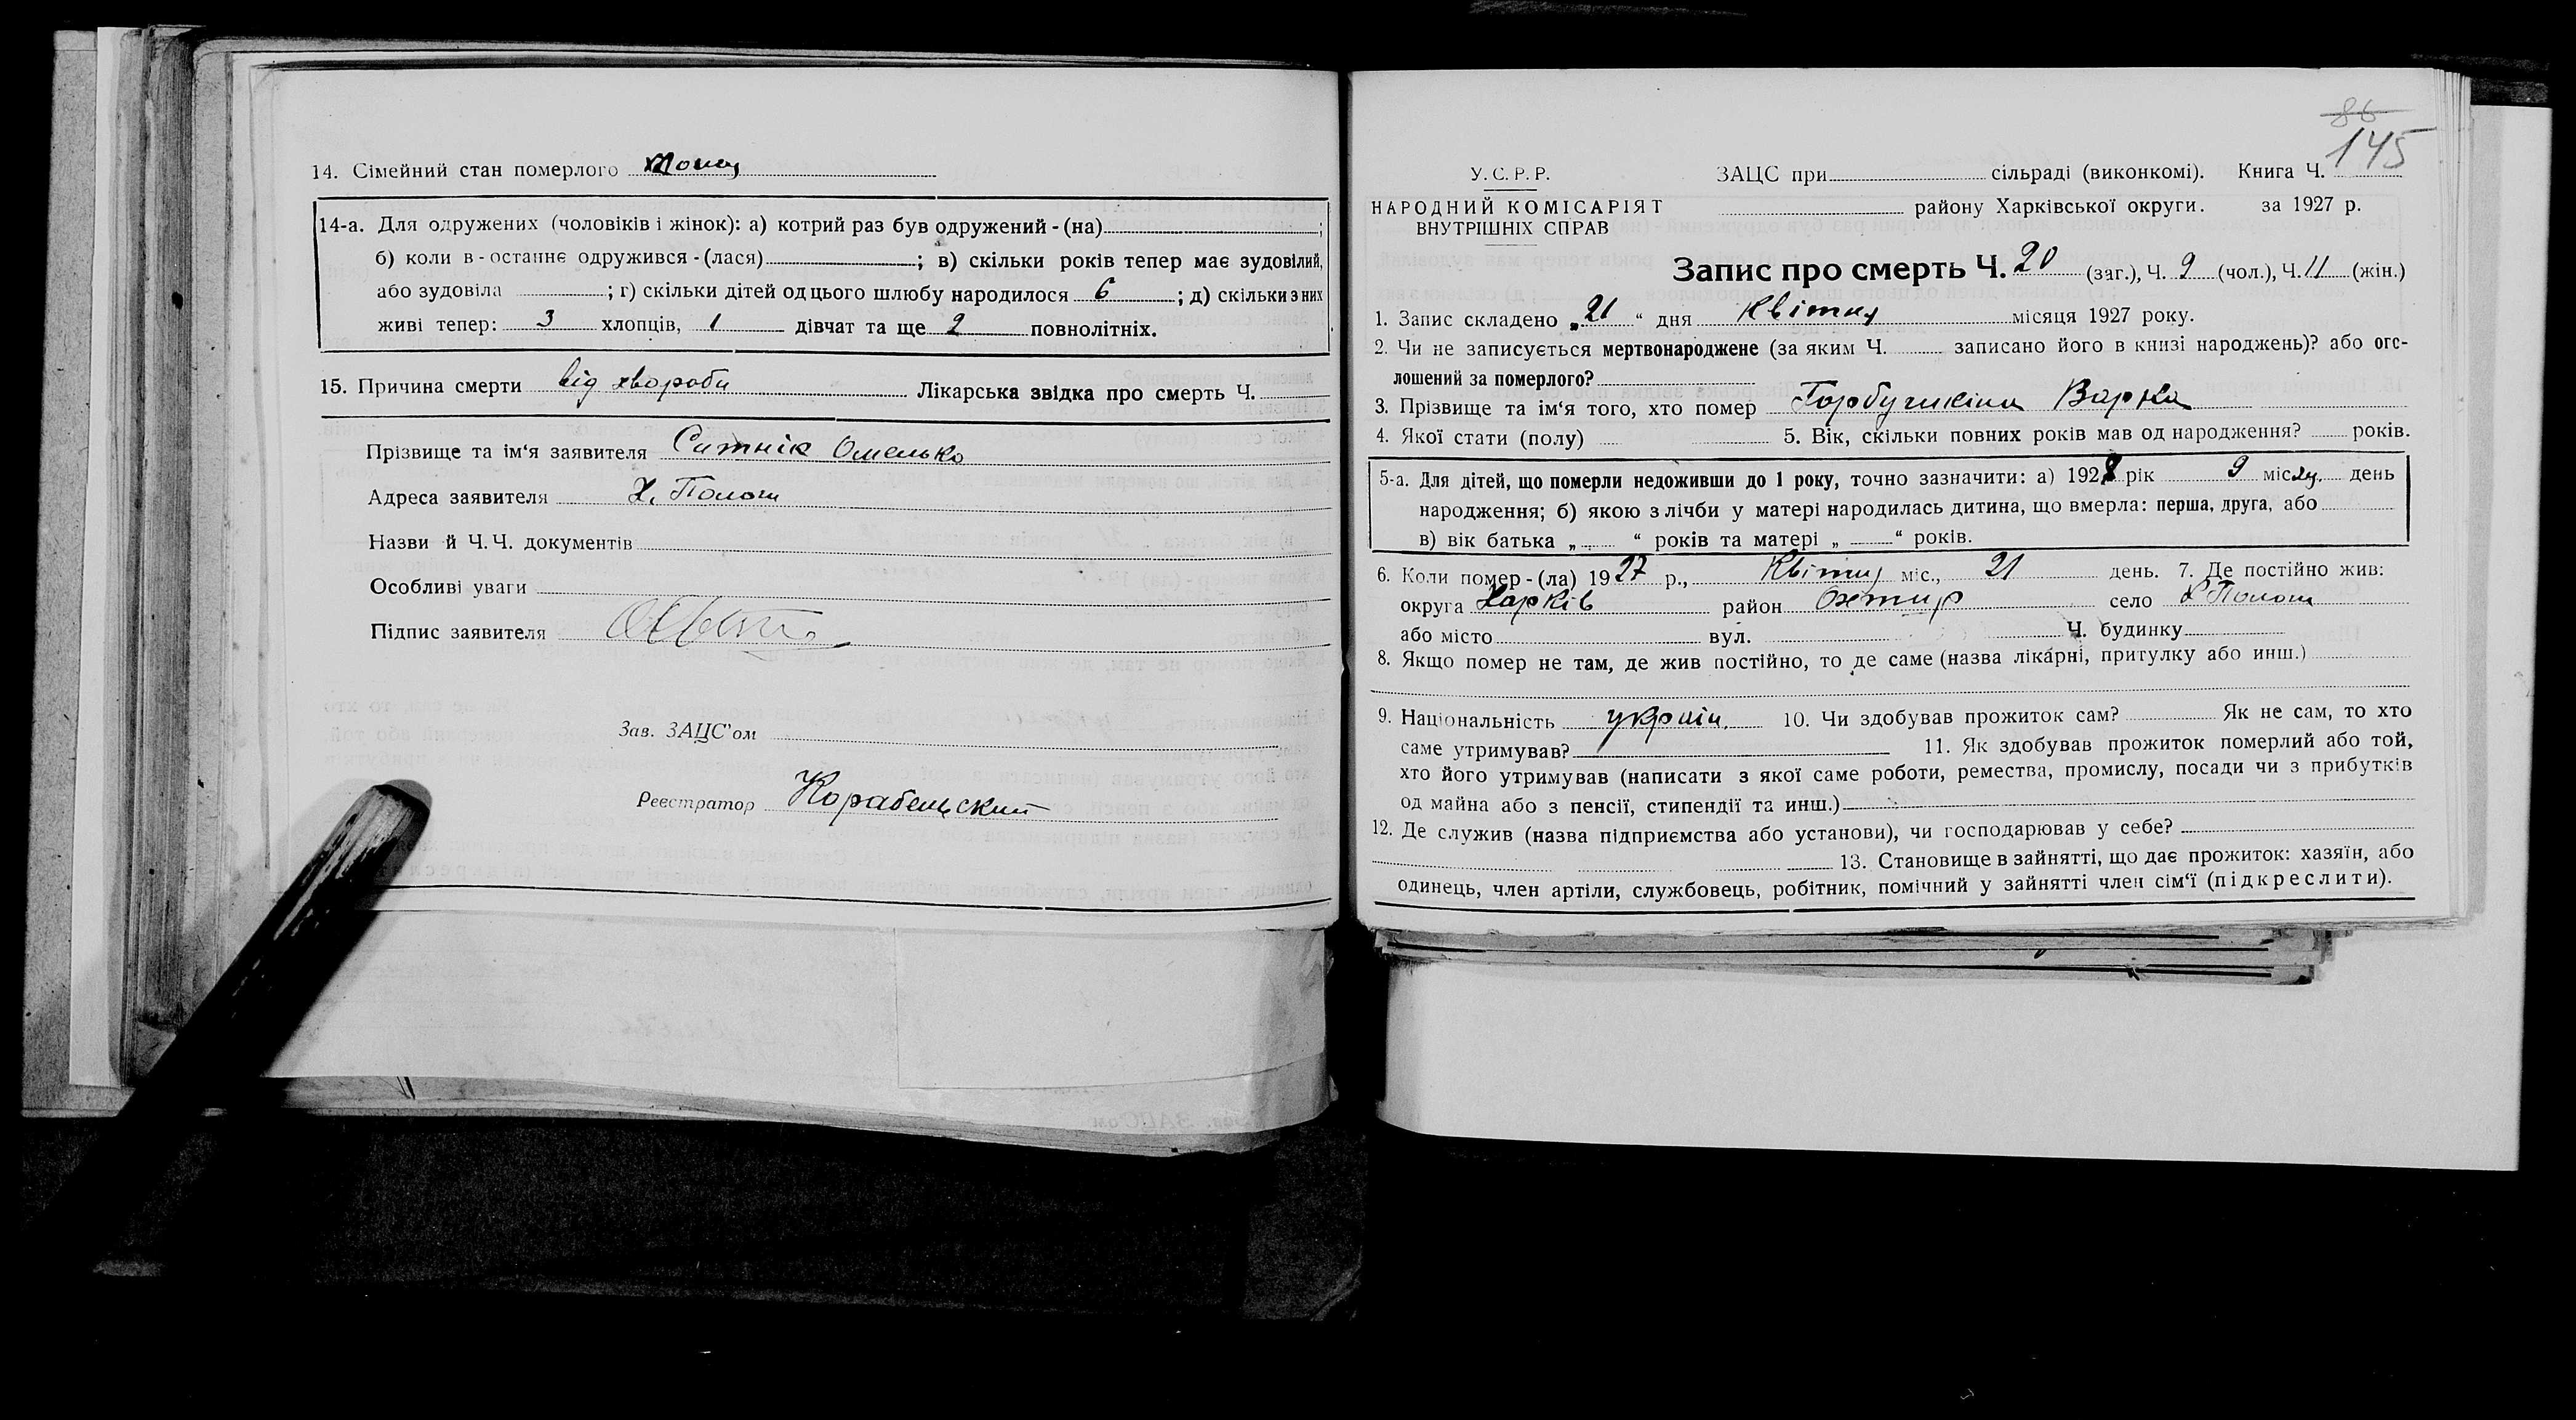 14. Сімейний стан померлого
14-а. Для одружених (чоловіків і жінок): а) котрий раз був одружений-(на) ;
б) коли в-останнє одружився-(лася) ; в) скільки років тепер має зудовілий,
або зудовіла ; г) скільки дітей од цього шлюбу народилося 6 ; д) скільки з них
живі тепер: 3 хлопців, 1 дівчат та ще 2 повнолітніх.
15. Причина смерти від хвороби Лікарська звідка про смерть Ч.
Прізвище та ім'я заявителя Ситнік Омелько
Адреса заявителя Х. Пологи
Назви й Ч.Ч. документів
Особливі уваги
Підпис заявителя
Зав. ЗАЦС'ом
Реєстратор Корабельский
86
145
У.С.Р.Р. ЗАЦС при сільраді (виконкомі). Книга Ч.
НАРОДНИЙ КОМІСАРІЯТ району Харківської округи. за 1927 р.
ВНУТРІШНІХ СПРАВ
Запис про смерть Ч. 20 (заг.), Ч. 9 (чол.), Ч. 11 (жін.)
1. Запис складено „21“ дня Квітня місяця 1927 року.
2. Чи не записується мертвонароджене (за яким Ч. записано його в книзі народжень)? або ого-
лошений за померлого?
3. Прізвище та ім'я того, хто помер Горбушкіна Варка
4. Якої стати (полу) 5. Вік, скільки повних років мав од народження? років.
5-а. Для дітей, що померли недоживши до 1 року, точно зазначити: а) 192 рік 9 місяц. день
народження; б) якою з лічби у матері народилась дитина, що вмерла: перша, друга, або
в) вік батька „ “ років та матері „ “ років.
6. Коли помер-(ла) 1927 р., Квітня міс., 21 день. 7. Де постійно жив:
округа Харків район Охтир село Х Пологи
або місто вул. Ч. будинку
8. Якщо помер не там, де жив постійно, то де саме (назва лікарні, притулку або инш.)
9. Національність україн. 10. Чи здобував прожиток сам? Як не сам, то хто
саме утримував? 11. Як здобував прожиток померлий або той,
хто його утримував (написати з якої саме роботи, ремества, промислу, посади чи з прибутків
од майна або з пенсії, стипендії та инш.)
12. Де служив (назва підприємства або установи), чи господарював у себе?
13. Становище в зайнятті, що дає прожиток: хазяїн, або
одинець, член артіли, службовець, робітник, помічний у зайнятті член сім'ї (підкреслити).